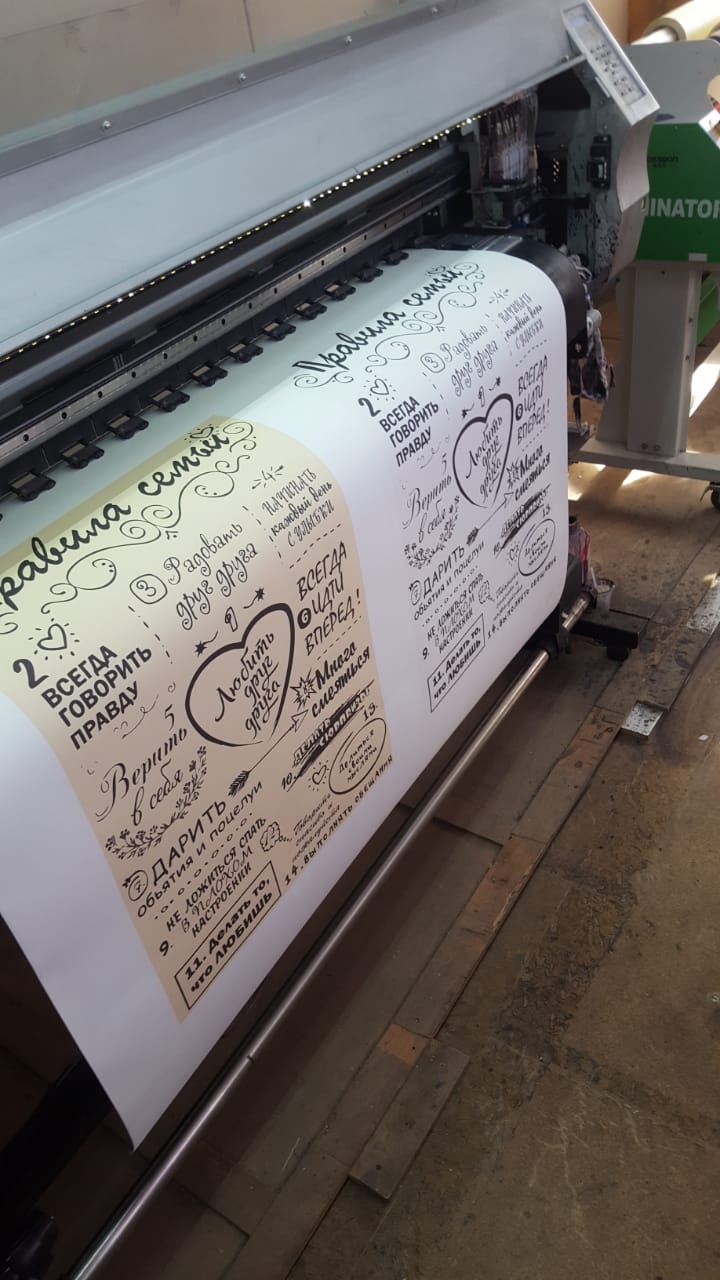 равила семьи
2
ВСЕГДА
ГОВОРИТЬ
ПРАВДУ
3 Радовать
друг друга
4
НАЧИНАТЬ
каждый день
С УЛЫБКИ
5
Верить
в себя
1
Любить
друг
друга
6
ВСЕГДА
ИДТИ
ВПЕРЕД!
7 ДАРИТЬ
объятия и поцелуи
8 Много
смеяться
9. НЕ ЛОЖИТЬСЯ СПАТЬ
В ПЛОХОМ
НАСТРОЕНИИ
10. ДЕЛАТЬ
СЮРПРИЗЫ
11. Делать то,
что ЛЮБИШЬ
13.
Делиться
своими
14. ВЫПОЛНЯТЬ ОБЕЩАНИЯ
Правила семьи
2
ВСЕГДА
ГОВОРИТЬ
ПРАВДУ
3 Радовать
друг друга
4
НАЧИНАТЬ
каждый день
С УЛЫБКИ
5
Верить
в себя
1
Любить
друг
друга
6
ВСЕГДА
ИДТИ
ВПЕРЕД!
7 ДАРИТЬ
объятия и поцелуи
8 Много
смеяться
9. НЕ ЛОЖИТЬСЯ СПАТЬ
В ПЛОХОМ
НАСТРОЕНИИ
10. ДЕЛАТЬ
СЮРПРИЗЫ
11. Делать то,
что ЛЮБИШЬ
13.
Делиться
своими
14. ВЫПОЛНЯТЬ ОБЕЩАНИЯ
INATOR